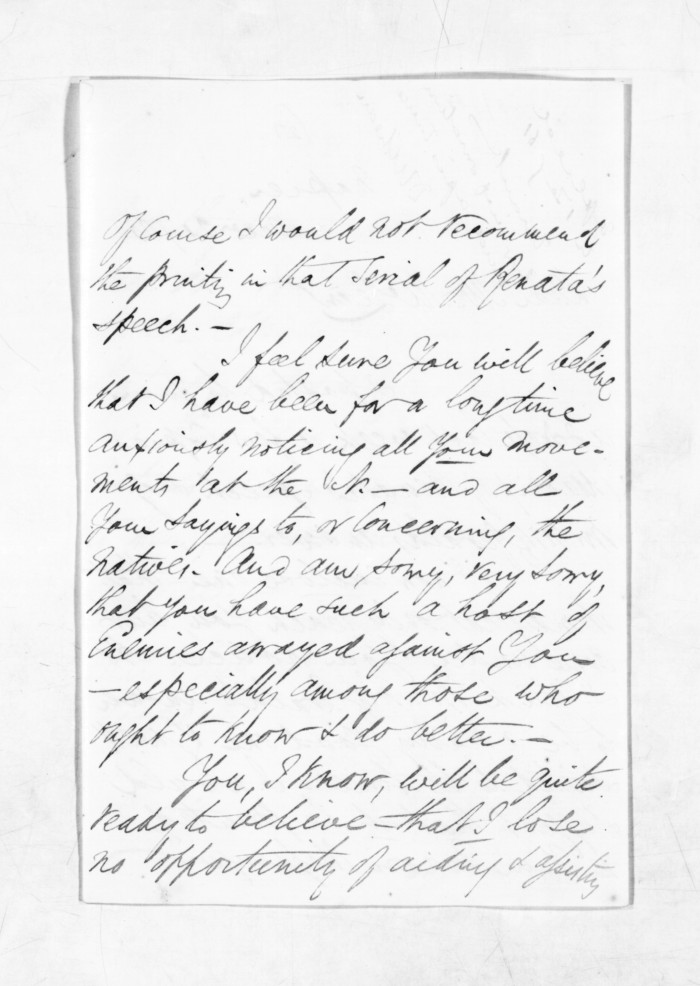 Of course I would not recommend
the printing in that Serial of Renata's
speech. —
I feel sure You will believe
that I have been for a long time
anxiously noticing all Your move-
ments at the N. — and all
Your Sayings to, or Concerning, the
Natives. And am sorry, very sorry,
that You have such a host of
Enemies arrayed against You
— especially among those who
ought to know & do better. —
You, I know, will be quite
ready to believe — that I lose
no opportunity of aiding & assisting